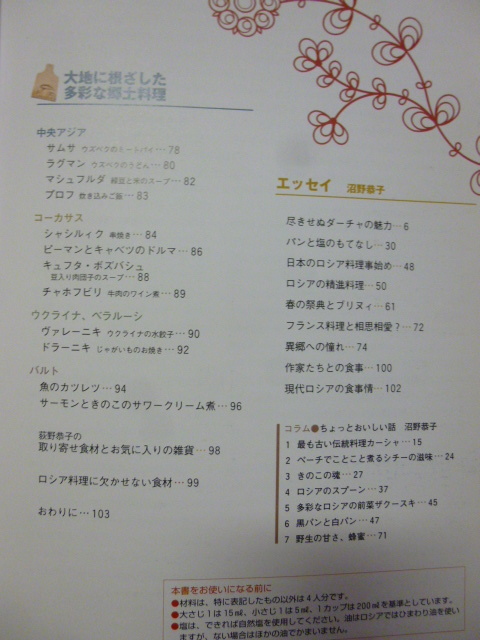 大地に根ざした
多彩な郷土料理
中央アジア
サムサ ウズベクのミートパイ…78
ラグマン ウズベクのうどん…80
マシュフルダ 緑豆と米のスープ…82
プロフ 炊き込みご飯…83
コーカサス
シャシルィク 串焼き…84
ピーマンとキャベツのドルマ…86
キュフタ・ボズバシュ
豆入り肉団子のスープ…88
チャホフビリ 牛肉のワイン煮…89
ウクライナ、ベラルーシ
ヴァレーニキ ウクライナの水餃子…90
ドラーニキ じゃがいものお焼き…92
バルト
魚のカツレツ…94
サーモンときのこのサワークリーム煮…96
荻野恭子の
取り寄せ食材とお気に入りの雑貨…98
ロシア料理に欠かせない食材…99
おわりに…103
エッセイ 沼野恭子
尽きせぬダーチャの魅力…6
パンと塩のもてなし…30
日本のロシア料理事始め…48
ロシアの精進料理…50
春の祭典とブリヌィ…61
フランス料理と相思相愛?…72
異郷への憧れ…74
作家たちとの食事…100
現代ロシアの食事情…102
コラム●ちょっとおいしい話 沼野恭子
1 最も古い伝統料理カーシャ…15
2 ペーチでことこと煮るシチーの滋味…24
3 きのこの魂…27
4 ロシアのスプーン…37
5 多彩なロシアの前菜ザクースキ…45
6 黒パンと白パン…47
7 野生の甘さ、蜂蜜…71
本書をお使いになる前に
●材料は、特に表記したもの以外は4人分です。
●大さじ1は15㎖、小さじ1は5㎖、1カップは200㎖を基準としています。
●塩は、できれば自然塩を使用してください。油はロシアではひまわり油を使い
ますが、ない場合はほかの油でかまいません。